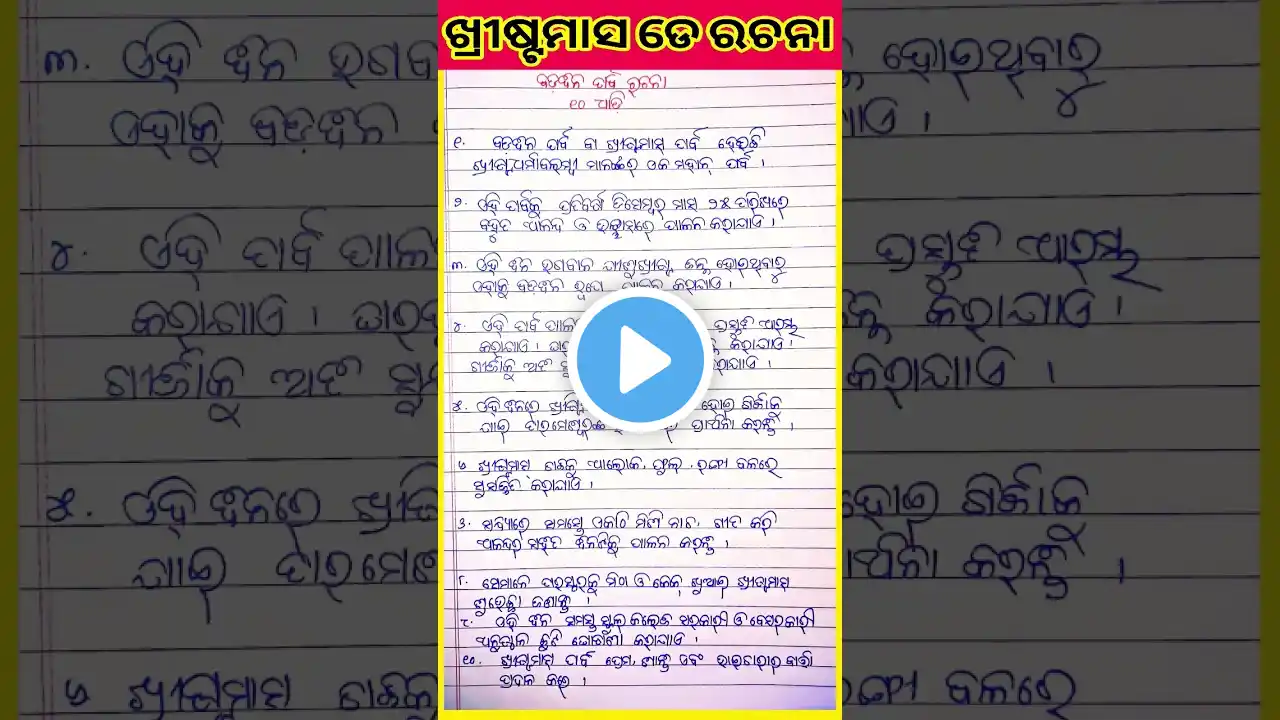 ଖ୍ରୀଷ୍ଟମାସ ଡେ ରଚନା
ବଡ଼ଦିନ ପର୍ବ ରଚନା
୧୦ ଧାଡ଼ି
୧. ବଡଦିନ ପର୍ବ ବା ଖ୍ରୀଷ୍ଟମାସ୍ ପର୍ବ ହେଉଛି
ଖ୍ରୀଷ୍ଟଧର୍ମାବଲମ୍ବୀ ମାନଙ୍କର ଏକ ମହାନ୍ ପର୍ବ ।
୨. ଏହି ପର୍ବକୁ ପ୍ରତିବର୍ଷ ଡିସେମ୍ବର ମାସ ୨୫ ତାରିଖରେ
ବହୁତ ଆନନ୍ଦ ଓ ଉଲ୍ଲାସରେ ପାଳନ କରାଯାଏ ।
୩. ଏହି ଦିନ ଭଗବାନ ଯୀଶୁଖ୍ରୀଷ୍ଟ ଜନ୍ମ ହୋଇଥିବାରୁ
ଏହାକୁ ବଡ଼ଦିନ ରୂପେ ପାଳନ କରାଯାଏ ।
୪. ଏହି ପର୍ବ ପାଳ ପ୍ରସ୍ତୁତି ଆରମ୍ଭ
କରାଯାଏ । କରାଯାଏ ।
ଗୀର୍ଜାକୁ ଅତି କରାଯାଏ ।
୫. ଏହି ଦିନରେ ହୋଇ ଗିର୍ଜାକୁ
ଯାଇ ପ୍ରାର୍ଥନା କରନ୍ତି ।
୬ ଖ୍ରୀଷ୍ଟମାସ ଗଛକୁ ଆଲୋକ, ଫୁଲ, ରଙ୍ଗୀ ବଲରେ
ସୁସଜ୍ଜିତ କରାଯାଏ ।
୭. ସନ୍ଧ୍ୟାରେ ସମସ୍ତେ ଏକାଠି ମିଶି ନାଚ, ଗୀତ କରି
ଆନନ୍ଦର ସହିତ ଦିନଟିକୁ ପାଳନ କରନ୍ତି ।
୮. ସେମାନେ ପରସ୍ପରକୁ ମିଠା ଓ କେକ୍ ଖୁଆଇ ଖ୍ରୀଷ୍ଟମାସ୍
ଶୁଭେଚ୍ଛା ଜଣାନ୍ତି ।
୯. ଏହି ଦିନ ସମସ୍ତ ସ୍କୁଲ କଲେଜ ସରକାରୀ ଓ ବେସରକାରୀ
ଅନୁଷ୍ଠାନ ଛୁଟି ଘୋଷଣା କରାଯାଏ ।
୧୦. ଖ୍ରୀଷ୍ଟମାସ୍ ପର୍ବ ପ୍ରେମ, ଶାନ୍ତି ଏବଂ ଭାଇଚାରାର ବାର୍ତ୍ତା
ପ୍ରଦାନ କରେ ।